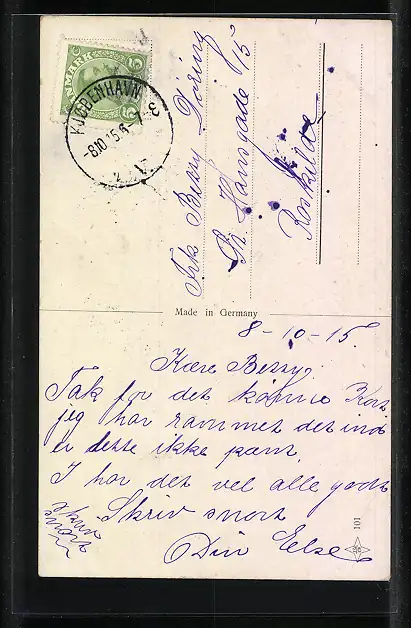 DANMARK
5
KJØBENHAVN
8.10.15.6-7 E
Frk Bessy Döring
Hansgade 15
Roskilde
Made in Germany
8-10-15.
Kære Bessy.
Tak for det kønne Kort
jeg har rammet det ind
er dette ikke pænt.
I har det vel alle godt
Skriv snart
Skriv
snart
Din Else
101